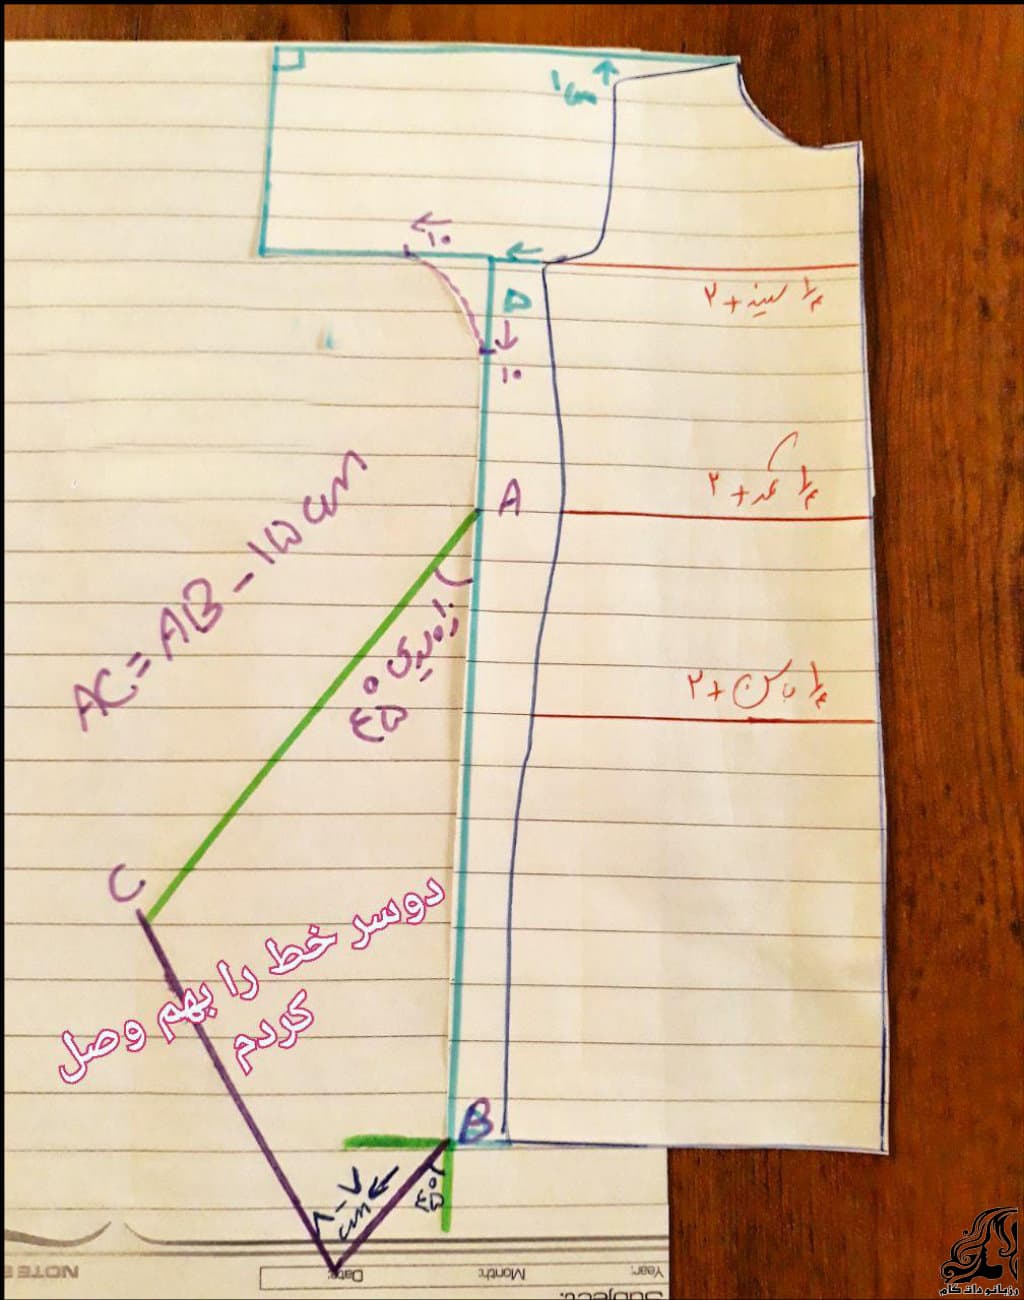 ۱ cm
۱۰
D
۱۰
۱/۴ سینه + ۲
۱/۴ کمر + ۲
۱/۴ باسن + ۲
A
AC = AB - ۱۵ cm
زاویه‌ی
۴۵°
C
دوسر خط را بهم وصل
کردم
B
۴۵°
۷-۸
cm
NOTE B
Subject:
Date:
Month:
Year:
رزبانو دات کام